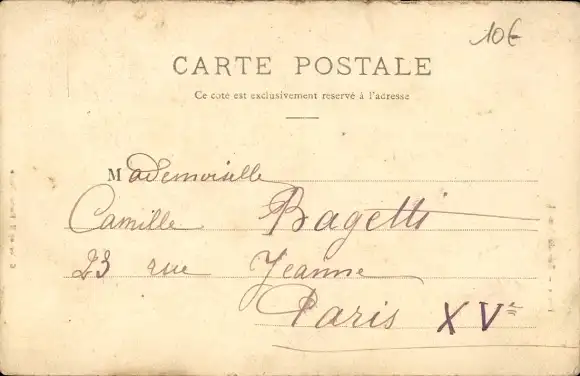 10€
CARTE POSTALE
Ce coté est exclusivement reservé à l'adresse
Mademoiselle
Camille Bagetti
23 rue Jeanne
Paris XVe